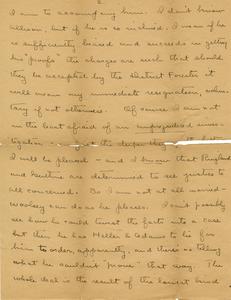 2
I am to assume any harm. I don't know
Allison, but if he is so inclined, I mean if he
is sufficiently biased and succeeds in getting
his "proofs" the chances are such that should
they be accepted by the District Forester it
will mean my immediate resignation, volun-
tary if not otherwise. Of course I am not
in the least afraid of an unprejudiced inves-
tigation — the deeper they
I will be pleased — and I know that Ringland
and are determined to see justice to
all concerned. So I am not at all worried —
Woolsey can do as he pleases. I can't possibly
see how he could twist the facts into a case
but then he has Heller & Adams to lie for
him to order, apparently, and there's no telling
what he couldn't "prove" that way. The
whole deal is the result of the lowest brand